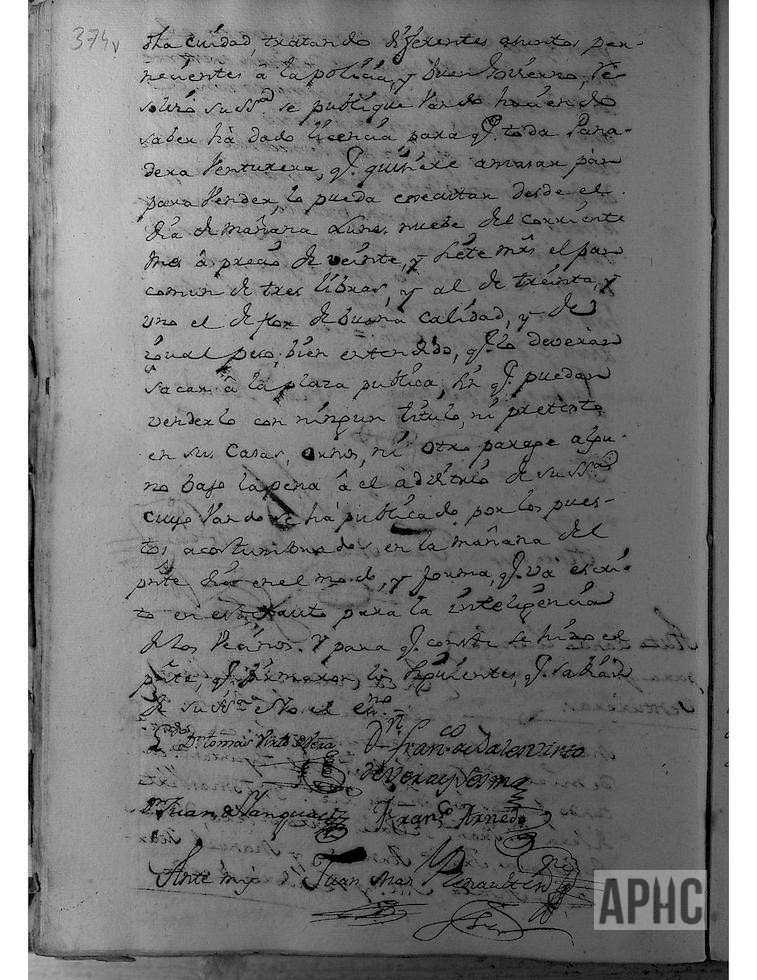 374v
dha ciudad, tratando diferentes asuntos per-
necientes â la policia, y buen Govierno, re-
solvió su SSª se publique Vando haciendo
saber hà dado licencia para qe toda Pana-
dera Venturera, qe quisiere amasar pan
para Vender, lo pueda executar desde el
dia de mañana Lunes nueve del corriente
mes â precio de veinte, y siete mrs el pan
comun de tres libras, y al de treinta, y
uno el de flor de buena calidad, y de
igual peso, bien entendido, qe lo deveran
sacar â la plaza publica, sin qe puedan
venderlo con ningun titulo, ni pretesto
en sus Casas, ornos, ni otro parage algu-
no bajo la pena â el advitrio de su SSª
cuyo Vando se ha publicado por los pues-
tos acostumbrados en la mañana del
pnte dia en el modo, y forma, qe vâ escri-
to en este auto para la inteligencia
de los Vecinos. Y para qe conste se hizo el
pnte, qe firmaron los siguientes, qe sabian
de su SSª e Yo el essno
Dn tomas Pinto Vera Dn Franco de Salen Pinto
de Vera y Ledesma
Dn Juan Franco Arnedo
Ante mi Juan
APHC